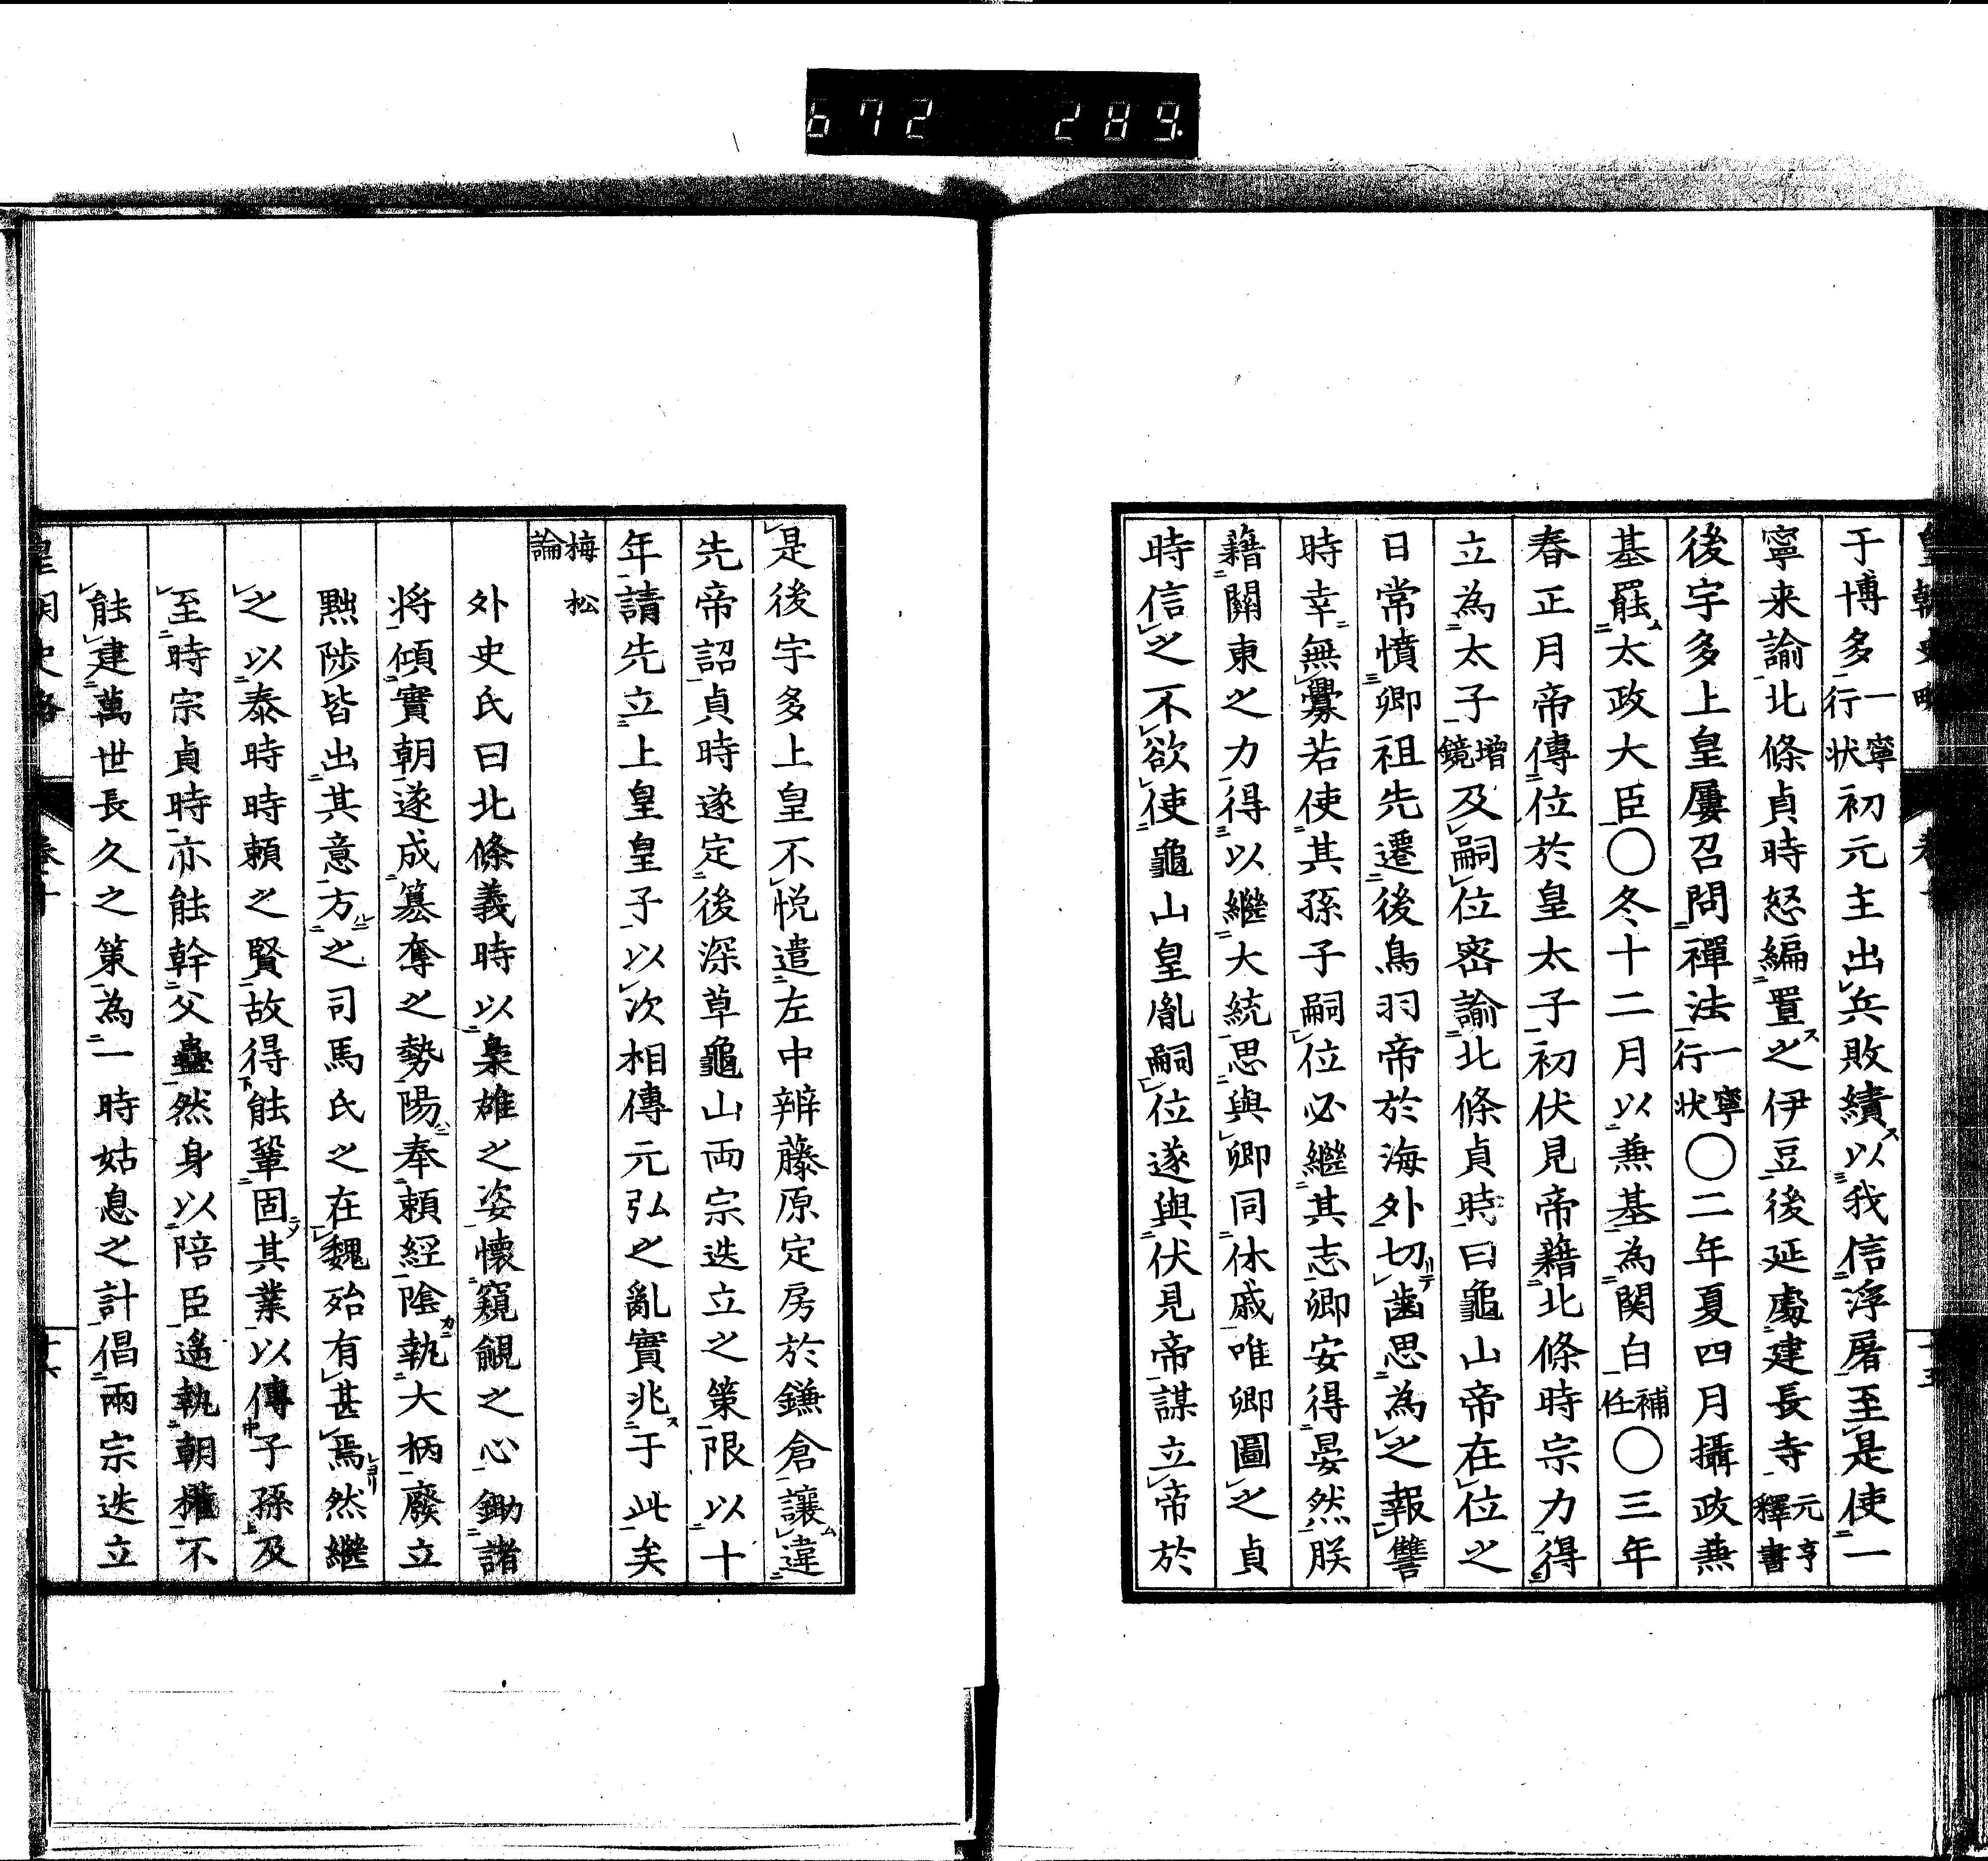 672 289
皇朝史略
于博多一寧行状初元主出兵敗績以我信浮屠至是使一
寧来諭北條貞時怒編置之伊豆後延處建長寺元亨釋書
後宇多上皇屢召問禪法一寧行状〇二年夏四月攝政兼
基罷太政大臣〇冬十二月以兼基為関白補任〇三年
春正月帝傳位於皇太子初伏見帝藉北條時宗力得
立為太子增鏡及嗣位密諭北條貞時曰龜山帝在位之
日常憤卿祖先遷後鳥羽帝於海外切齒思為之報讐
時幸無釁若使其孫子嗣位必繼其志卿安得晏然朕
藉關東之力得以繼大統思與卿同休戚唯卿圖之貞
時信之不欲使龜山皇胤嗣位遂與伏見帝謀立帝於
是後宇多上皇不悦遣左中辨藤原定房於鎌倉讓違
先帝詔貞時遂定後深草龜山両宗迭立之策限以十
年請先立上皇皇子以次相傳元弘之亂實兆于此矣
梅松論
外史氏曰北條義時以梟雄之姿懷窺覦之心鋤諸
将傾實朝遂成簒奪之勢陽奉頼經陰執大柄廢立
黜陟皆出其意方之司馬氏之在魏殆有甚焉然繼
之以泰時時頼之賢故得能鞏固其業以傳子孫及
至時宗貞時亦能幹父蠱然身以陪臣遙執朝權不
能建萬世長久之策為一時姑息之計倡兩宗迭立
皇朝史略